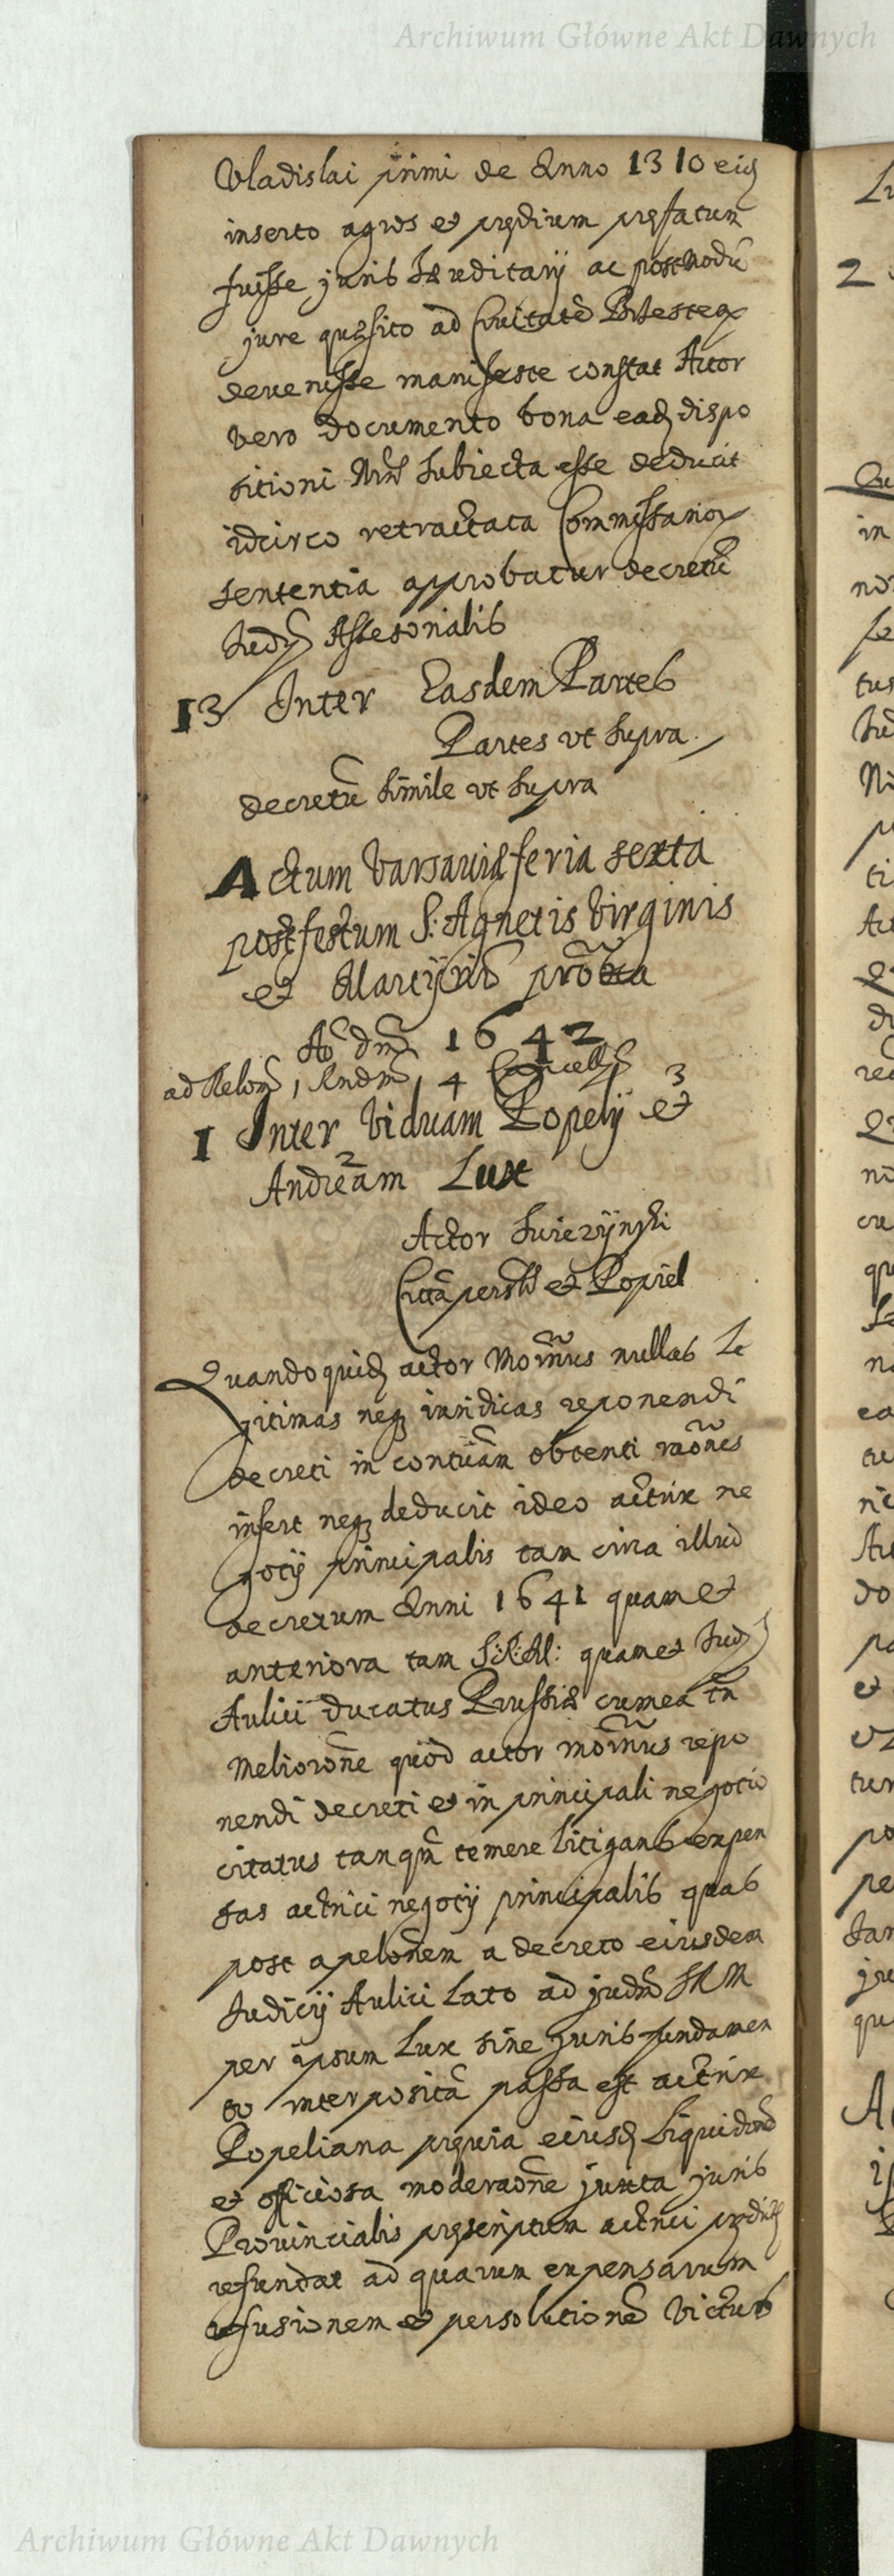 Archiwum Główne Akt Dawnych
Vladislai primi de Anno 1310 eiq
inserto agros et prędium pręfatum
fuisse juris hereditarij ac postmodũ
jure quęsito ad Civitatẽ
devenisse manifeste constat Actor
vero documento bona eadq dispo
sitioni Nrae subiecta esse deducit
idcirco retractata Commissariorx
sententia approbatur decretũ
Judy Assesorialis
13 Inter Easdem Partes
Partes vt supra
decretũ simile vt supra
Actum Varsauię feria sexta
post festum S: Agnetis Virginis
et Martijris proxa
Ao dni 1642
ad Relom, 4 Cancell 3
1 Inter Viduam Popelij et
2
Andream Lux
Actor Swiezijnski
Citta persłis et Popiel
Quandoquidq actor Momnus nullas Le
gitimas neqz iuridicas reponendi
decreti in contũam obtenti raones
infert neqz deducit ideo actrix ne
gotij principalis tam circa illud
decretum Anni 1641 quam et
anteriora tam S:R:M: quam et Judy
Aulici Ducatus Prussię cum ea tñ
meliorone quod actor momnus repo
nendi decreti et in principali negotio
citatus tanqm temere litigans expen
sas actrici negotij principalis quas
post apelonem a decreto eiusdem
Judicij Aulici Lato ad judm SRM
per ipsum Lux sine juris fundamen
to interpositã passa est actrix
Popeliana pręvia eiusdq Liquidone
et officiosa moderaone juxta juris
Provincialis pręscriptum actrici
refundat ad quarum expensarum
refusionem et persolutionẽ Victus
Archiwum Główne Akt Dawnych